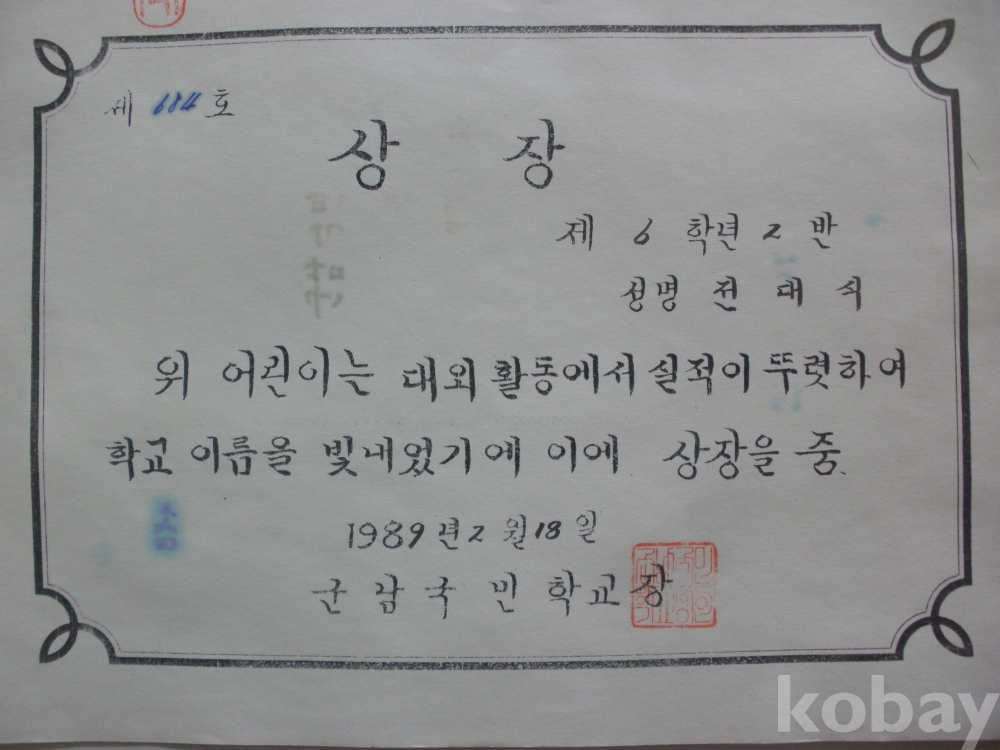 제 684 호
상 장
제 6 학년 2 반
성명 전 대 식
위 어린이는 대외 활동에서 실적이 뚜렷하여
학교 이름을 빛내었기에 이에 상장을 줌.
1989년 2 월 18 일
군 남 국 민 학 교 장
kobay